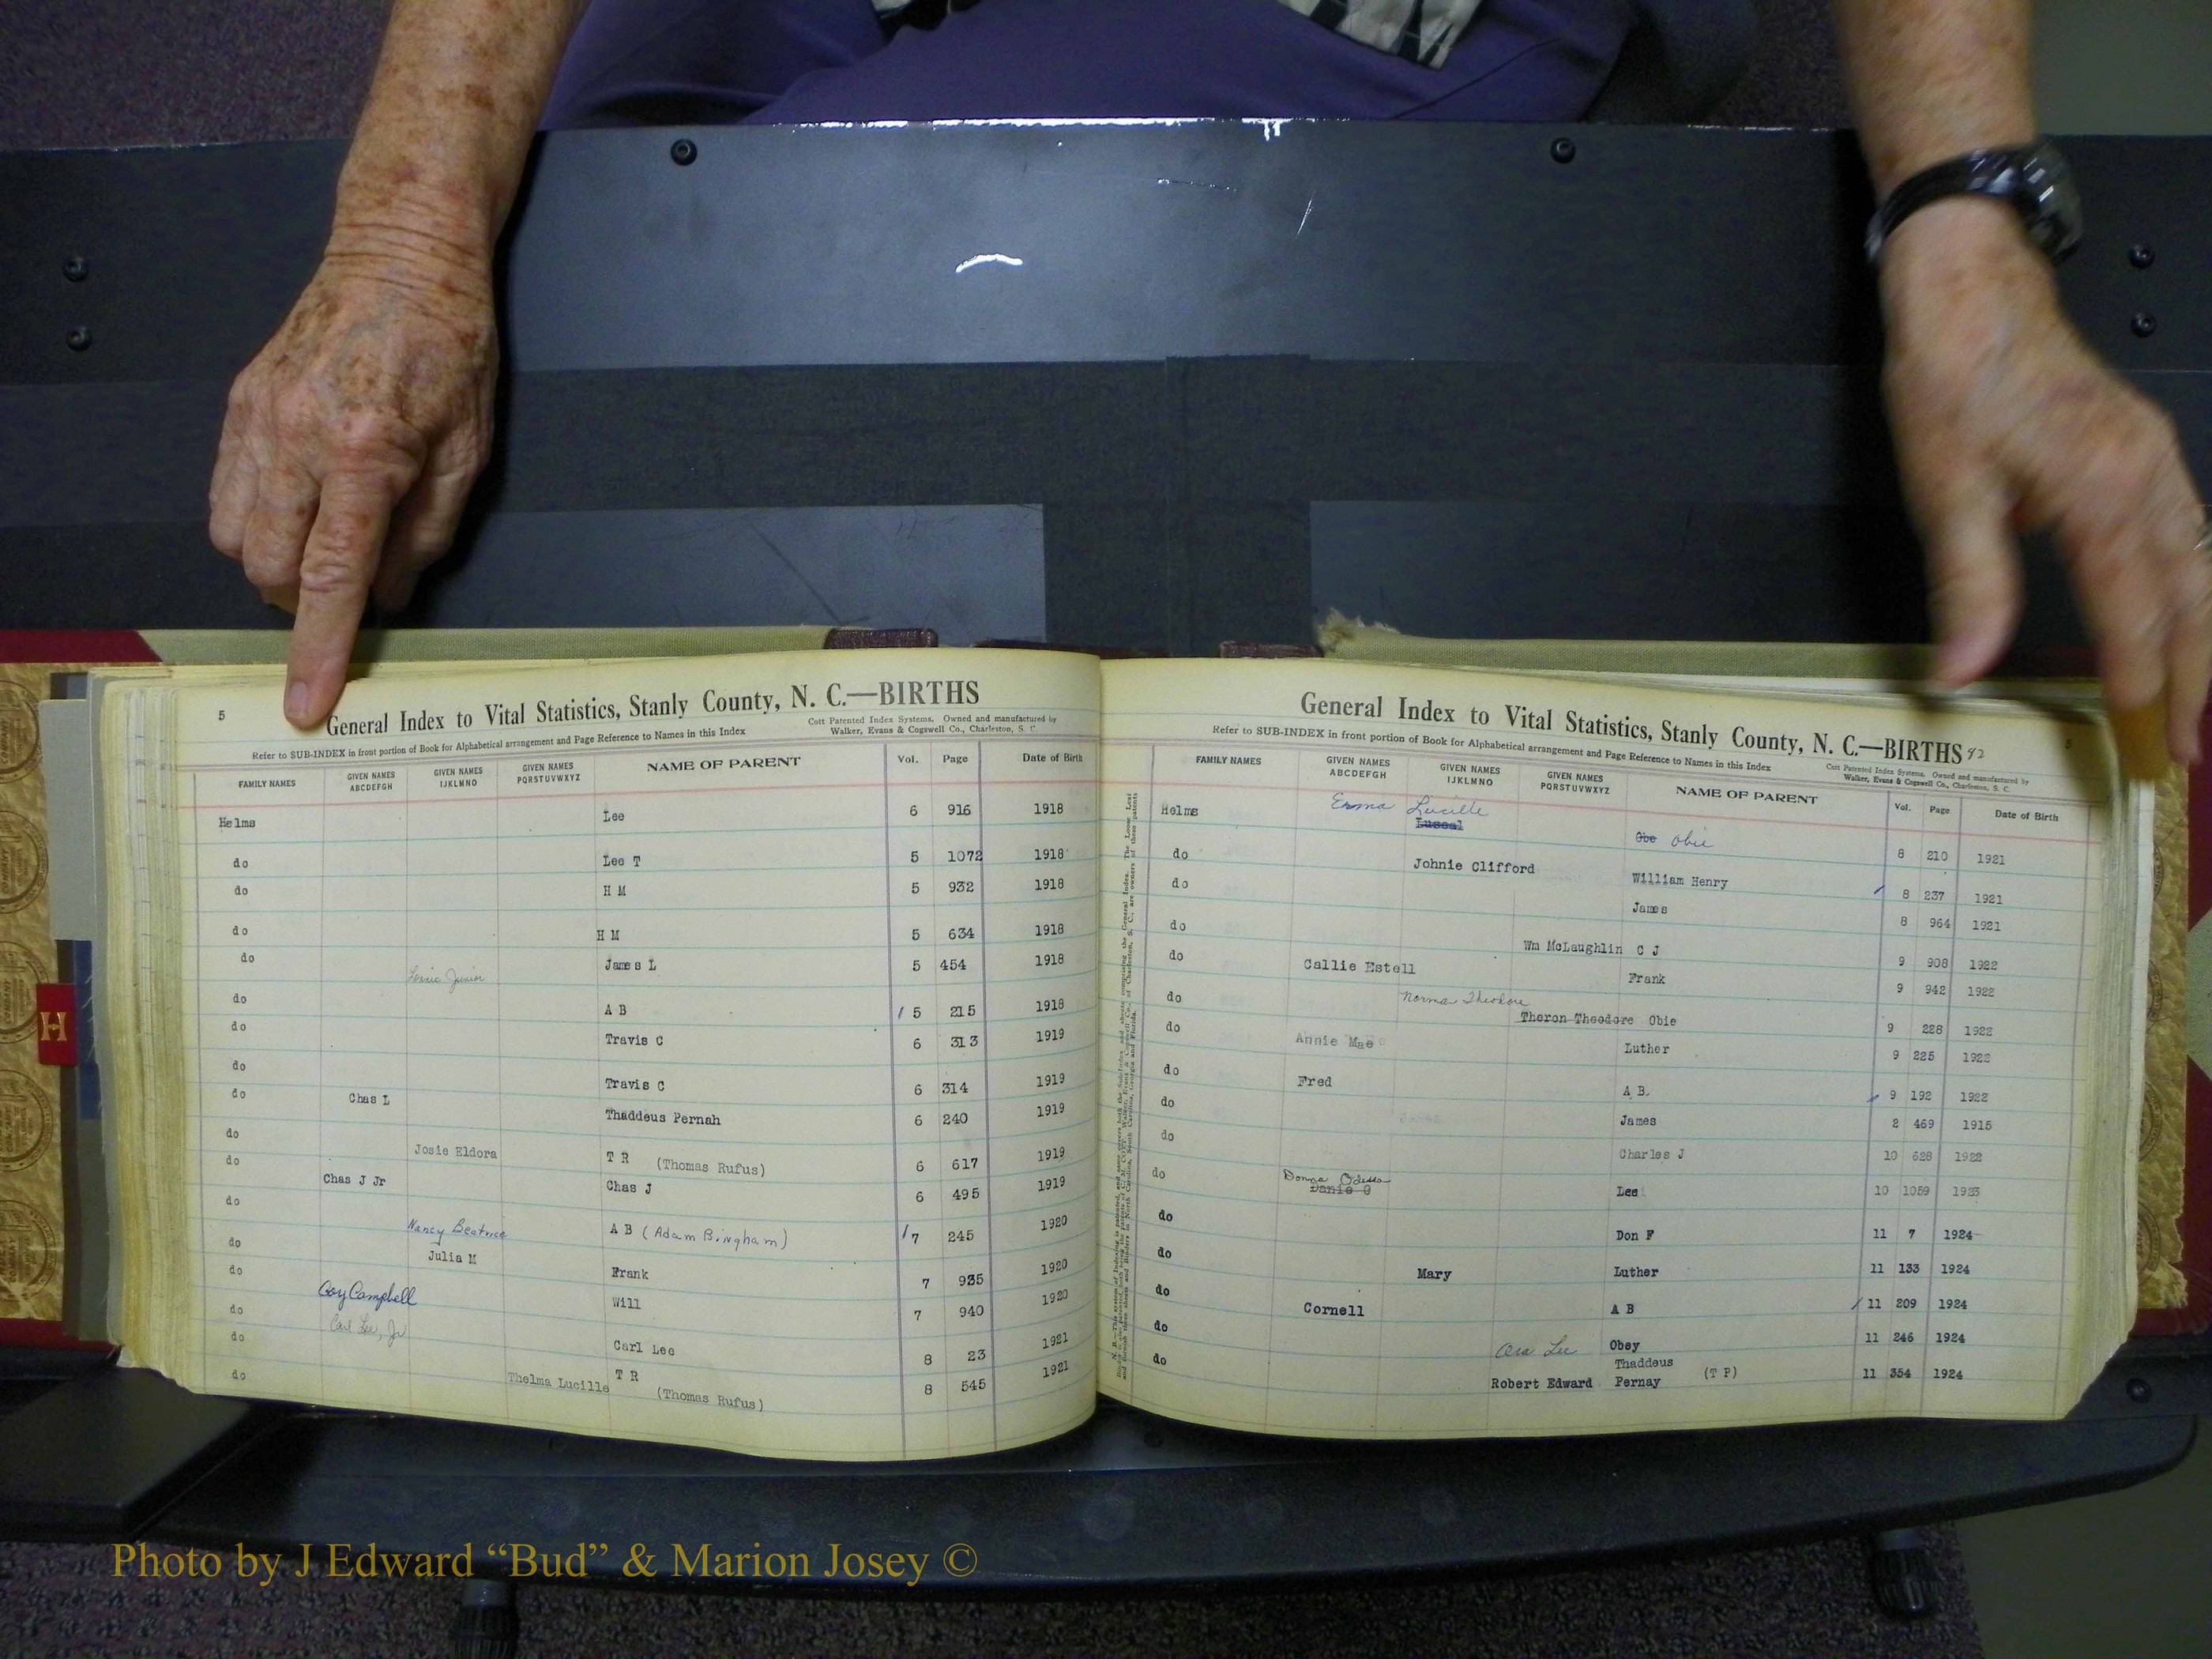 5
General Index to Vital Statistics, Stanly County, N. C.—BIRTHS
Refer to SUB-INDEX in front portion of Book for Alphabetical arrangement and Page Reference to Names in this Index
Cott Patented Index Systems. Owned and manufactured by
Walker, Evans & Cogswell Co., Charleston, S. C.
FAMILY NAMES GIVEN NAMES ABCDEFGH GIVEN NAMES IJKLMNO GIVEN NAMES PQRSTUVWXYZ NAME OF PARENT Vol. Page Date of Birth
Helms Lee 6 916 1918
do Lee T 5 1072 1918
do H M 5 932 1918
do H M 5 634 1918
do Junior James L 5 454 1918
do A B / 5 215 1918
do Travis C 6 313 1919
do Travis C 6 314 1919
do Chas L Thaddeus Pernah 6 240 1919
do Josie Eldora T R (Thomas Rufus) 6 617 1919
do Chas J Jr Chas J 6 495 1919
do Nancy Beatrice A B (Adam Bingham) / 7 245 1920
do Julia M Frank 7 935 1920
do Coy Campbell Will 7 940 1920
do Carl Lee, Jr Carl Lee 8 23 1921
do
do Thelma Lucille T R (Thomas Rufus) 8 545 1921
General Index to Vital Statistics, Stanly County, N. C.—BIRTHS 92
5
Refer to SUB-INDEX in front portion of Book for Alphabetical arrangement and Page Reference to Names in this Index
Cott Patented Index Systems. Owned and manufactured by
Walker, Evans & Cogswell Co., Charleston, S. C.
FAMILY NAMES GIVEN NAMES ABCDEFGH GIVEN NAMES IJKLMNO GIVEN NAMES PQRSTUVWXYZ NAME OF PARENT Vol. Page Date of Birth
Helms Emma Lucille Obe Obie 8 210 1921
do Johnie Clifford William Henry 8 237 1921
do James 8 964 1921
do Wm McLaughlin C J 9 908 1922
do Callie Estell Frank 9 942 1922
do Norman Theodore Theron Theodore Obie 9 228 1922
do Annie Mae Luther 9 225 1922
do Fred A B. 9 192 1922
do James 2 469 1915
do Charles J 10 628 1922
do Donna Odessa Danie O Lee 10 1059 1923
do Don F 11 7 1924
do Mary Luther 11 133 1924
do Cornell A B / 11 209 1924
do Ora Lee Obey 11 246 1924
do Robert Edward Thaddeus Pernay (T P) 11 354 1924
H
Photo by J Edward “Bud” & Marion Josey ©